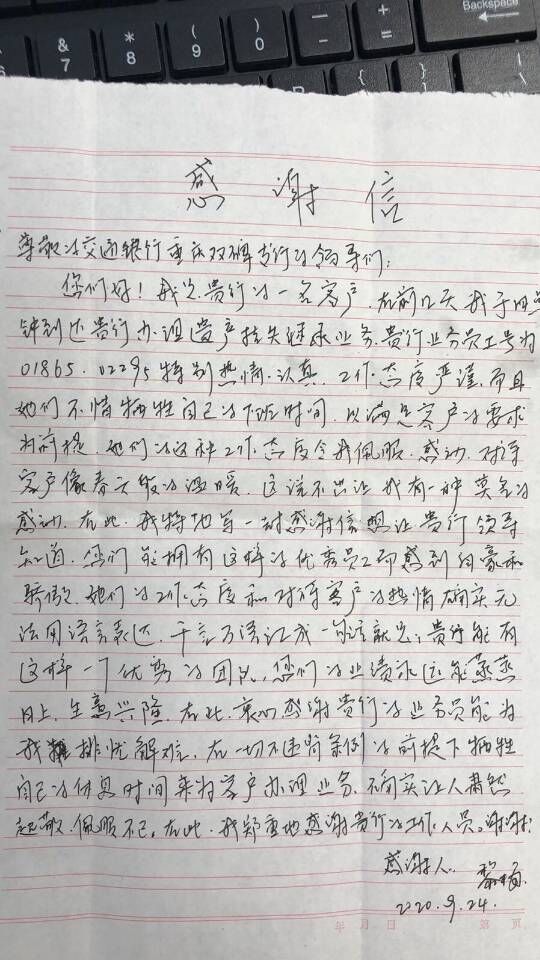 Backspace
& 7
* 8
( 9
) 0
—
+ =
{ [
} ]
感谢信
尊敬的交通银行重庆双碑支行的领导们:
您们好!我是贵行的一名客户.在前几天我于四点
钟到达贵行办理遗产挂失继承业务.贵行业务员工号为
01865.02295特别热情.认真.工作态度严谨.而且
她们不惜牺牲自己的下班时间.以满足客户的要求
为前提.她们的这种工作态度令我佩服.感动.对待
客户像春天般的温暖.这说不出让我有一种莫名的
感动.在此.我特地写一封感谢信想让贵行领导
知道.您们能拥有这样的优秀员工而感到自豪和
骄傲.她们的工作态度和对待客户的热情确实无
法用语言表达.千言万语汇成一句话就是:贵行能有
这样一个优秀的团队.您们的业绩永远能蒸蒸
日上.生意兴隆.在此.衷心感谢贵行的业务员能为
我排忧解难.在一切不违背条例的前提下牺牲
自己的休息时间来为客户办理业务.不确实让人肃然
起敬.佩服不已.在此.我郑重地感谢贵行的工作人员.谢谢!
感谢人:黎
2020.9.24.
年 月 日 第 页